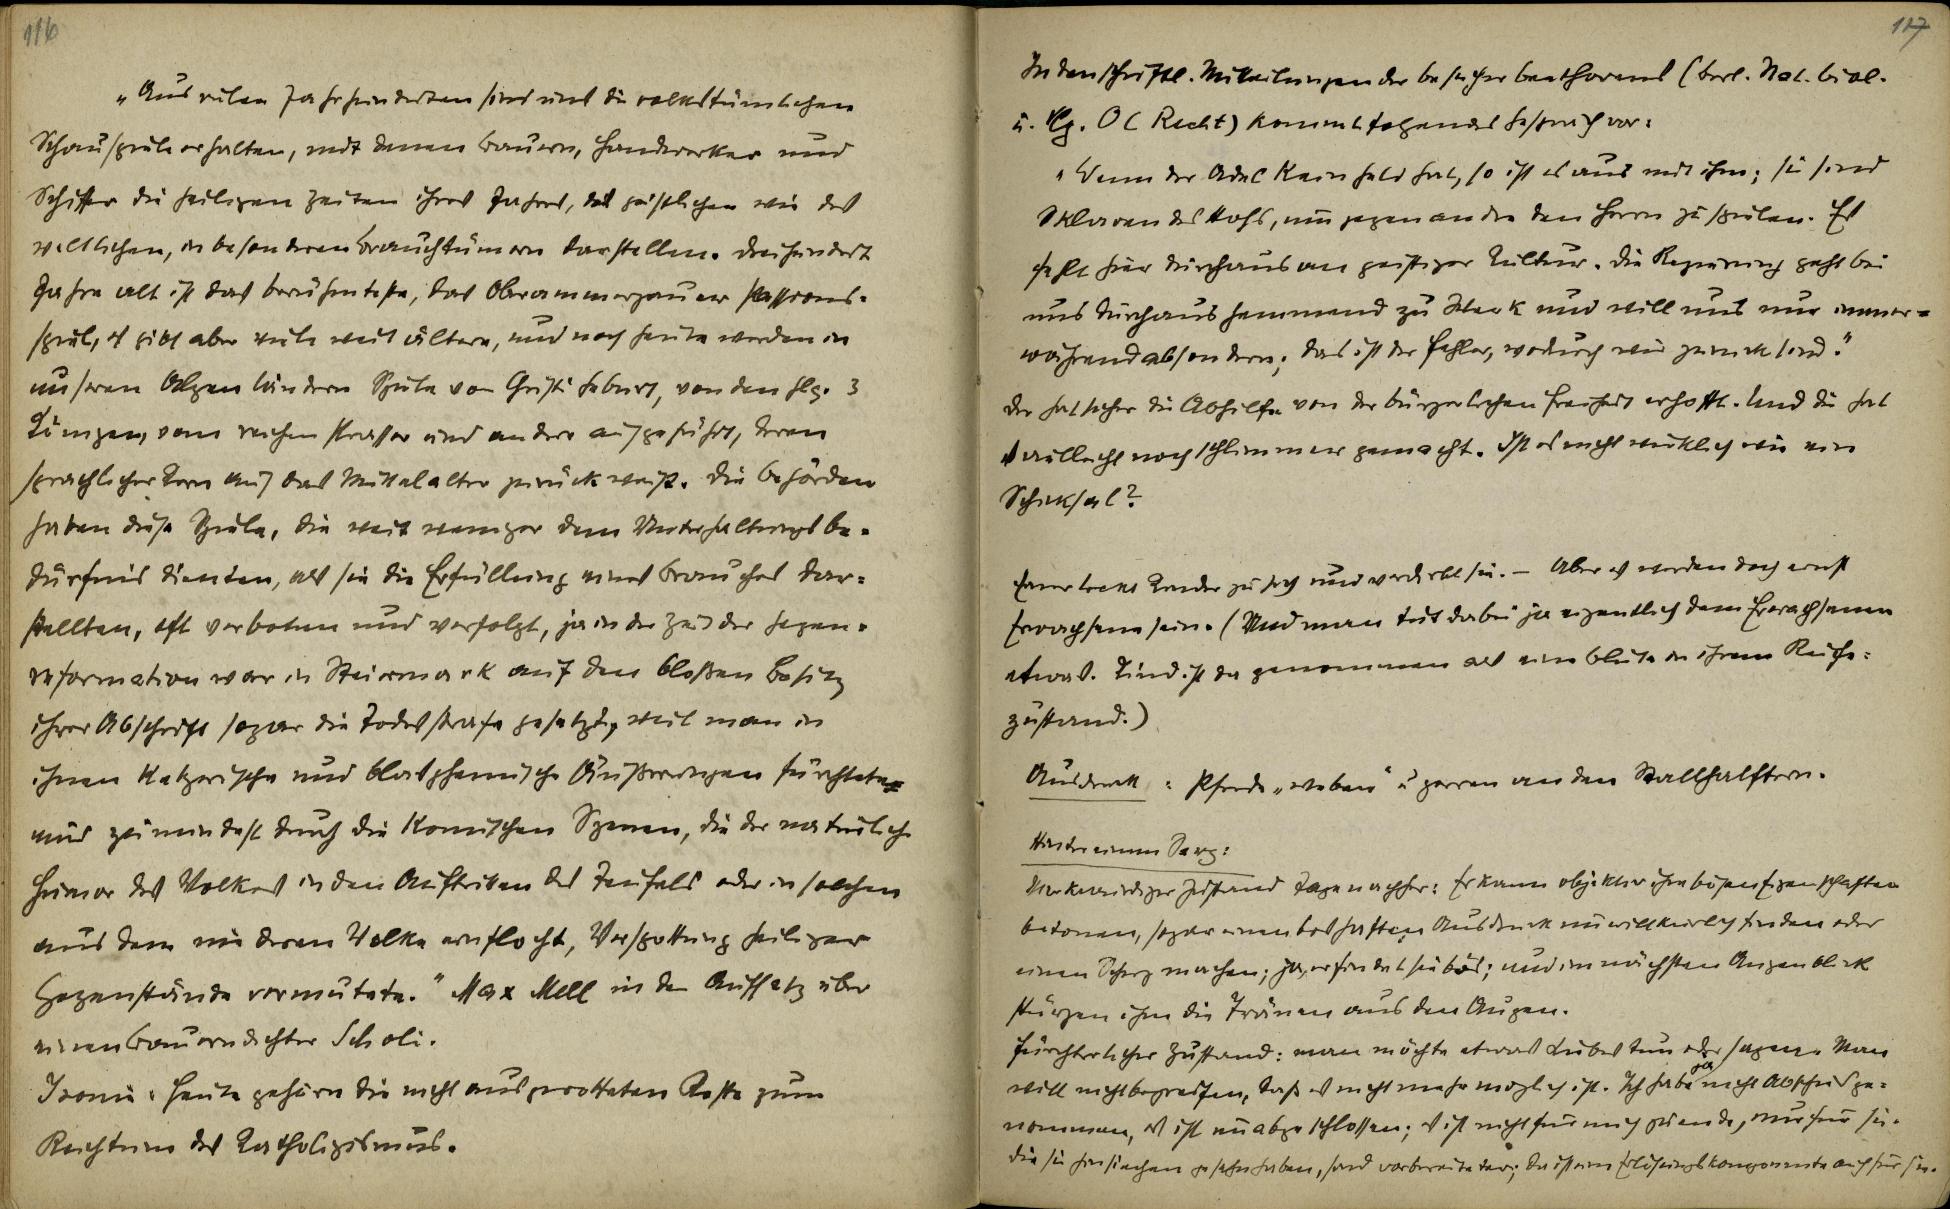 116
„Aus vielen Jahrhunderten sind uns die volkstümlichen
Schauspiele erhalten, mit denen Bauern, Handwerker und
Schiffer die heiligen Zeiten ihres Jahres, des geistlichen wie des
weltlichen, in besonderen Brauchtümern darstellen. Dreihundert
Jahre alt ist das berühmteste, das Oberammergauer Passions-
spiel, es gibt aber viele weit ältere, und noch heute werden in
unseren Alpenländern Spiele von Christi Geburt, von den hlg. 3
Königen, vom reichen Prasser und andere aufgeführt, deren
sprachlicher Kern auf das Mittelalter zurückweist. Die Behörden
haben diese Spiele, die weit weniger dem Unterhaltungsbe-
dürfnis dienten, als sie die Erfüllung eines Brauches dar-
stellten, oft verboten und verfolgt, ja in der Zeit der Gegen-
reformation war in Steiermark auf den bloßen Besitz
ihrer Abschrift sogar die Todesstrafe gesetzt, weil man in
ihnen ketzerische und blasphemische Äußerungen fürchtete
und zumindest durch die komischen Szenen, die der natürliche
Humor des Volkes in den Auftritten des Teufels oder in solchen
aus dem niederen Volke einflocht, Verspottung heiliger
Gegenstände vermutete.“ Max Mell in dem Aufsatz über
einen Bauerndichter Scholi.
Ironie: Heute gehören die nicht ausgerotteten Reste zum
Reichtum des Katholizismus.
117
In den schriftl. Mitteilungen der Besucher Beethovens (Berl. Nat. bibl.
u. Vlg. O( Recht) kommt folgendes Gespräch vor:
„Wenn der Adel kein Geld hat, so ist es aus mit ihm; sie sind
Sklaven des Hofs, um gegen andre den Herrn zu spielen. Es
fehlt hier durchaus an geistiger Kultur. Die Regierung geht bei
uns durchaus hemmend zu Werk und will uns nur immer-
während absondern; das ist der Fehler, wodurch wir zurück sind.“
Der hat sicher die Abhilfe von der bürgerlichen Freiheit erhofft. Und die hat
es vielleicht noch schlimmer gemacht. Ist es nicht wirklich wie ein
Schicksal?
Einer lockt Kinder zu sich und verdirbt sie. – Aber es werden doch einst
Erwachsene sein. (Und man tut dabei ja eigentlich dem Erwachsenen
etwas. Kind ist da genommen als eine Blüte in ihrem Reife-
zustand.)
Ausdruck: Pferde „weben“ u zerren an den Stallhalftern.
Hinter einem Sarg:
Merkwürdiger Zustand Tage nachher: Er kann objektiv ihre bösen Eigenschaften
betonen, sogar einen boshaften Ausdruck unwillkürlich finden oder
einen Scherz machen; ja, er findet sie bös; und im nächsten Augenblick
stürzen ihm die Tränen aus den Augen.
Fürchterlicher Zustand: man möchte etwas Liebes tun oder sagen. Man
will nicht begreifen, daß es nicht mehr möglich ist. Ich habe ja nicht Abschied ge-
nommen, es ist nie abgeschlossen; es ist nicht für mich zuende, nur für sie.
Die sie hinsiechen gesehn haben, sind vorbereiteter; da ist eine Erlösungskomponente auch für sie.